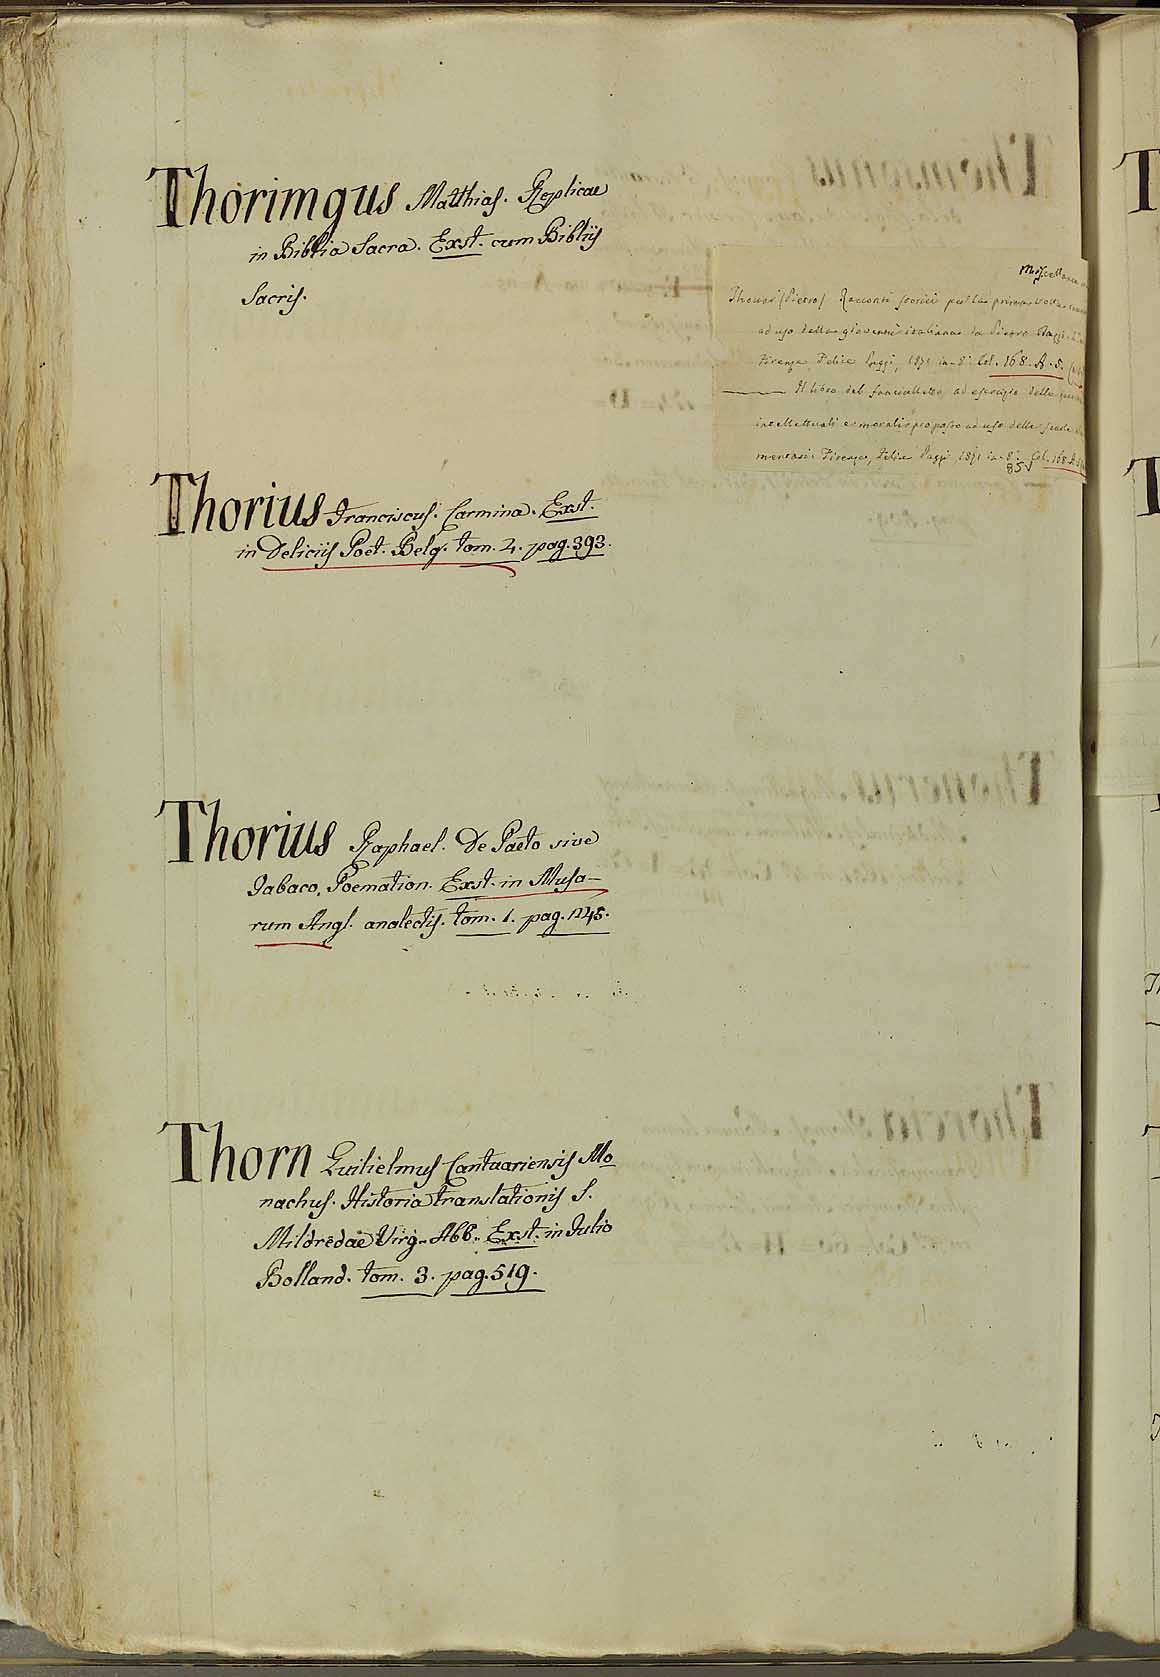 Thorimgus Matthias. Replicae
in Biblia Sacra. Exst. cum Bibliis
Sacris.
Thorius Franciscus. Carmina. Exst.
in Deliciis Poet. Belg. tom. 4. pag. 393.
Thorius Raphael. De Paeto sive
Tabaco, Poemation. Exst. in Musa-
rum Angl. analectis. tom. 1. pag. 1245.
Thorn Guilielmus Cantuariensis Mo
nachus. Historia translationis S.
Mildredae Virg. Abb. Exst. in Julio
Bolland. tom. 3. pag. 519.
Miscellanea
Thouar (Pietro) Racconti storici per la prima volta
ad uso della gioventù italiana da Pietro
Firenze, Felice Paggi, 1871 in-8. Col. 168. A. 5.
Il libro del fanciulletto ad esercizio delle
intellettuali e morali proposto ad uso delle scuole
mentari. Firenze, Felice Paggi, 1871 in-8. Col. 168. A.
85